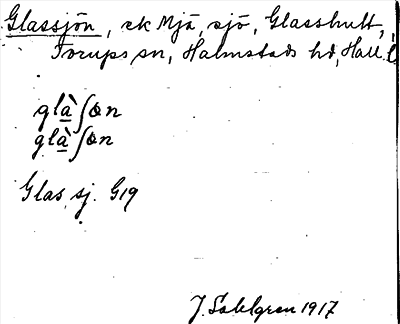 Glassjön, ek Mjä, sjö, Glasshult,
Torups sn, Halmstads hd, Hall. l.
glàʃɷn
glàʃɷn
Glas sj. G19
J. Sahlgren 1917